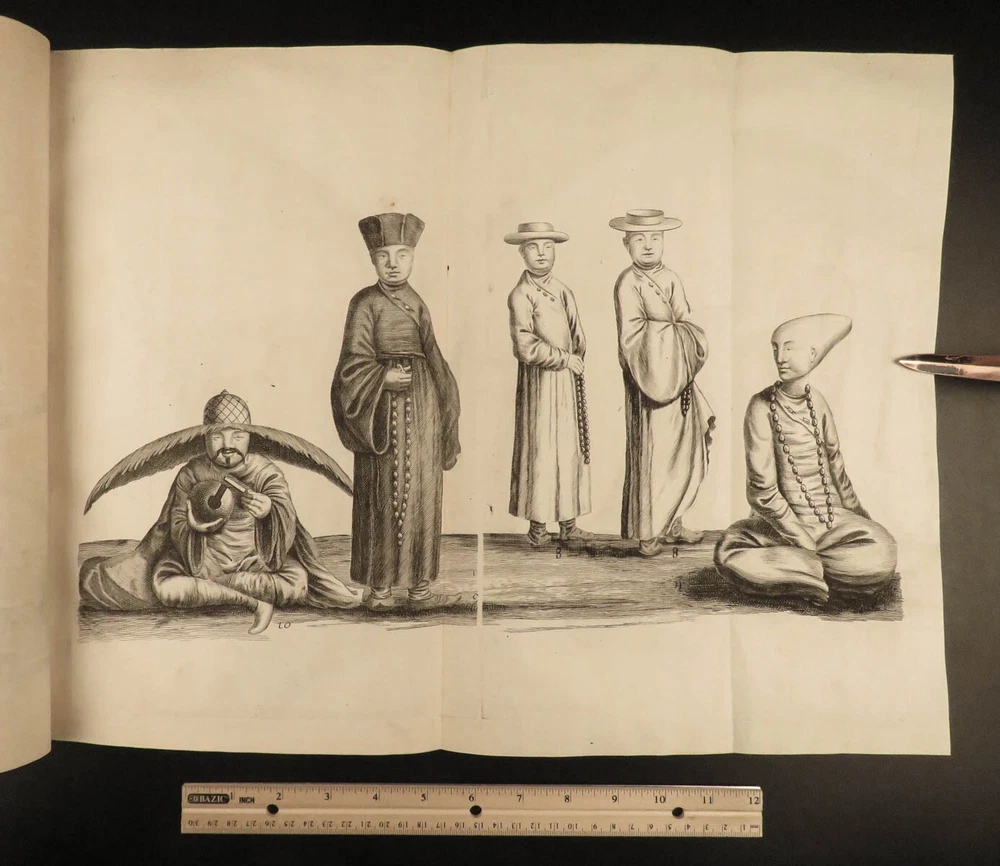 8
10
BAZIC 1 INCH 2 3 4 5 6 7 8 9 10 11 12
30 29 28 27 26 25 24 23 22 21 20 19 18 17 16 15 14 13 12 11 10 9 8 7 6 5 4 3 2 1